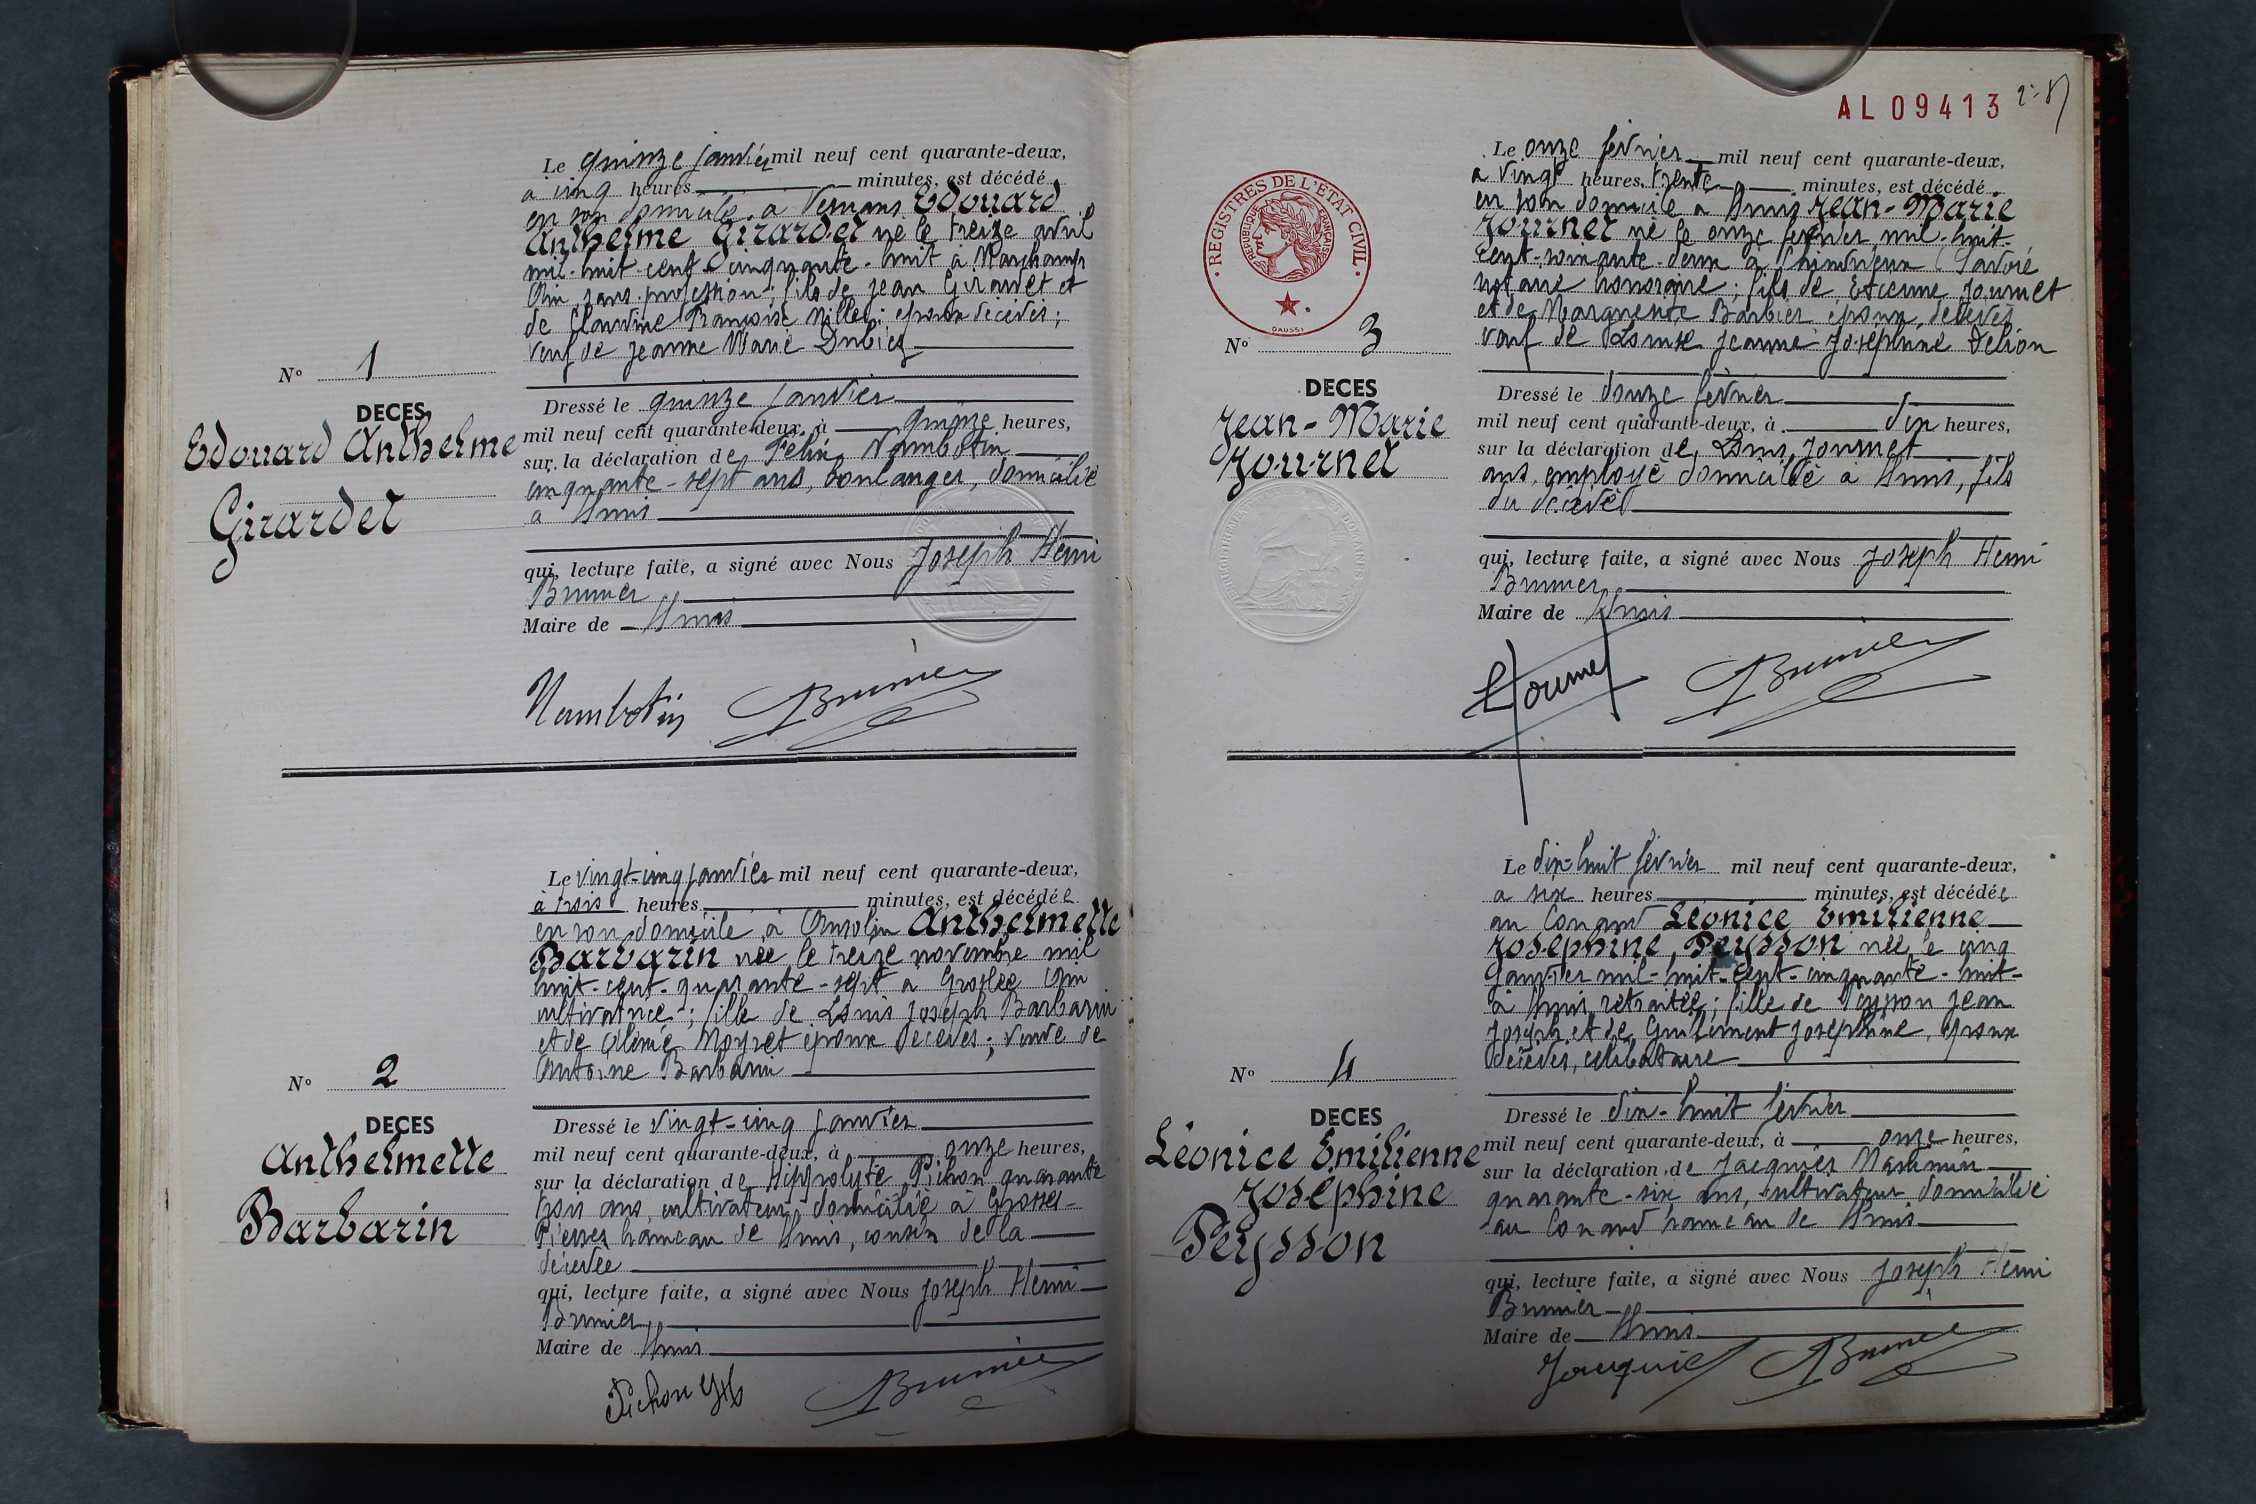 Le quinze janvier mil neuf cent quarante-deux,
a cinq heures minutes, est décédé
en son domicile a Edouard
Anthelme Girardet né le treize avril
mil-huit-cent-cinquante-huit à Marchamp
Ain, sans profession; fils de Jean Girardet et
de Claudine Françoise Millet; époux décédés;
veuf de Jeanne Marie Dubiez
Nº 1
DECES
Edouard Anthelme
Girardet
Dressé le quinze janvier
mil neuf cent quarante-deux, à quinze heures,
sur la déclaration de Félix Nambotin
cinquante-sept ans, boulanger, domicilié
a Lhuis
qui, lecture faite, a signé avec Nous Joseph Henri
Brunier
Maire de Lhuis
Nambotin Brunier
Le vingt-cinq janvier mil neuf cent quarante-deux,
à trois heures minutes, est décédée
en son domicile, à Ansolin Anthelmette
Barbarin née le treize novembre mil
huit-cent-quarante-sept à Groslée Ain
cultivatrice; fille de Louis Joseph Barbarin
et de Moyret époux décédés; veuve de
Antoine Barbarin
Nº 2
DECES
Anthelmette
Barbarin
Dressé le vingt-cinq janvier
mil neuf cent quarante-deux, à onze heures,
sur la déclaration de Hippolyte Pichon quarante
trois ans, cultivateur, domicilié à Grosses-
Pierres hameau de Lhuis, cousin de la
décédée
qui, lecture faite, a signé avec Nous Joseph Henri
Brunier
Maire de Lhuis
Pichon Brunier
AL 09413
REGISTRES DE L'ÉTAT CIVIL
RÉPUBLIQUE FRANÇAISE
DAUSSI
Le onze février mil neuf cent quarante-deux,
a vingt heures, trente minutes, est décédé
en son domicile a Lhuis Jean-Marie
Journet né le onze février mil-huit-
cent-soixante-deux a Chindrieux (Savoie
notaire honoraire; fils de Etienne Journet
et de Marguerite Barbier époux décédés
veuf de Louise Jeanne Joséphine Delion
Nº 3
DECES
Jean-Marie
Journet
Dressé le douze février
mil neuf cent quarante-deux, à dix heures,
sur la déclaration de Louis Journet
ans, employé domicilié à Lhuis, fils
du décédé
qui, lecture faite, a signé avec Nous Joseph Henri
Brunier
Maire de Lhuis
L Journet Brunier
Le dix-huit février mil neuf cent quarante-deux,
a six heures minutes, est décédée
au Conand Léonice Emilienne
Joséphine Peysson née le cinq
janvier mil-huit-cent-cinquante-huit-
à Lhuis, retraitée; fille de Peysson Jean
Joseph et de Guillermont Joséphine, époux
décédés, célibataire
Nº 4
DECES
Léonice Emilienne
Joséphine
Peysson
Dressé le dix-huit février
mil neuf cent quarante-deux, à onze heures,
sur la déclaration de Jacquier Maximin
quarante-six ans, cultivateur domicilié
au Conand hameau de Lhuis
qui, lecture faite, a signé avec Nous Joseph Henri
Brunier
Maire de Lhuis
Jacquier Brunier